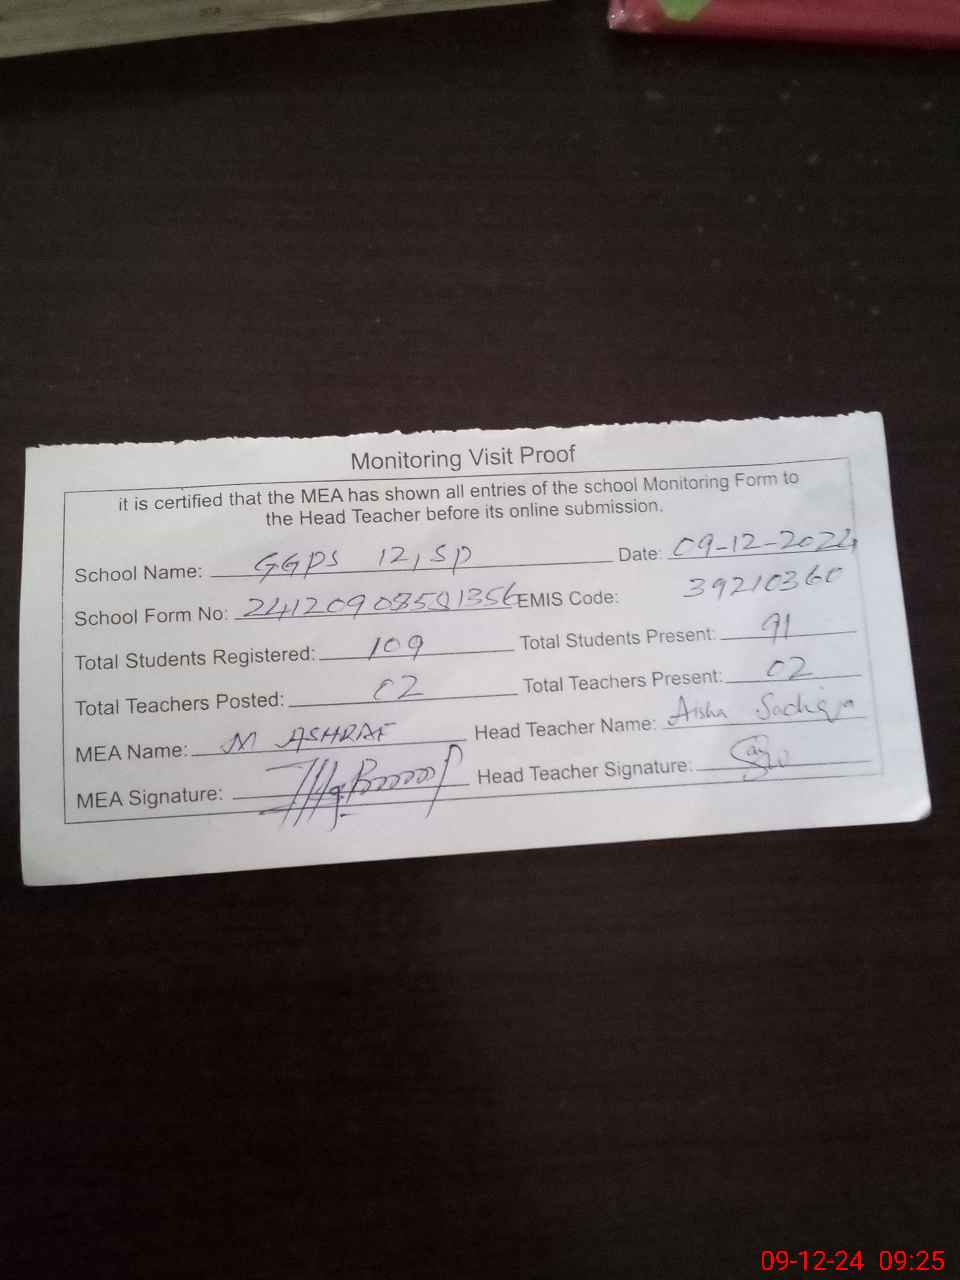 Monitoring Visit Proof
it is certified that the MEA has shown all entries of the school Monitoring Form to
the Head Teacher before its online submission.
School Name: GGPS 12, SP Date: 09-12-2024
School Form No: EMIS Code: 39210360
Total Students Registered: 109 Total Students Present: 91
Total Teachers Posted: 02 Total Teachers Present: 02
MEA Name: M ASHRAF Head Teacher Name: Aisha
MEA Signature: Head Teacher Signature:
09-12-24 09:25